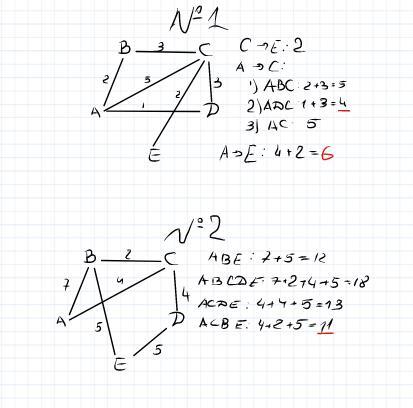 №1
B 3 C
2 5 3
A 1 2 D
E
C → E: 2
A → C:
1) ABC: 2+3=5
2) ADC 1+3=4
3) AC: 5
A→E: 4+2=6
№2
B 2 C
7 4 4
A 5 D
E 5
ABE: 7+5=12
ABCDE: 7+2+4+5=18
ACDE: 4+4+5=13
ACBE: 4+2+5=11